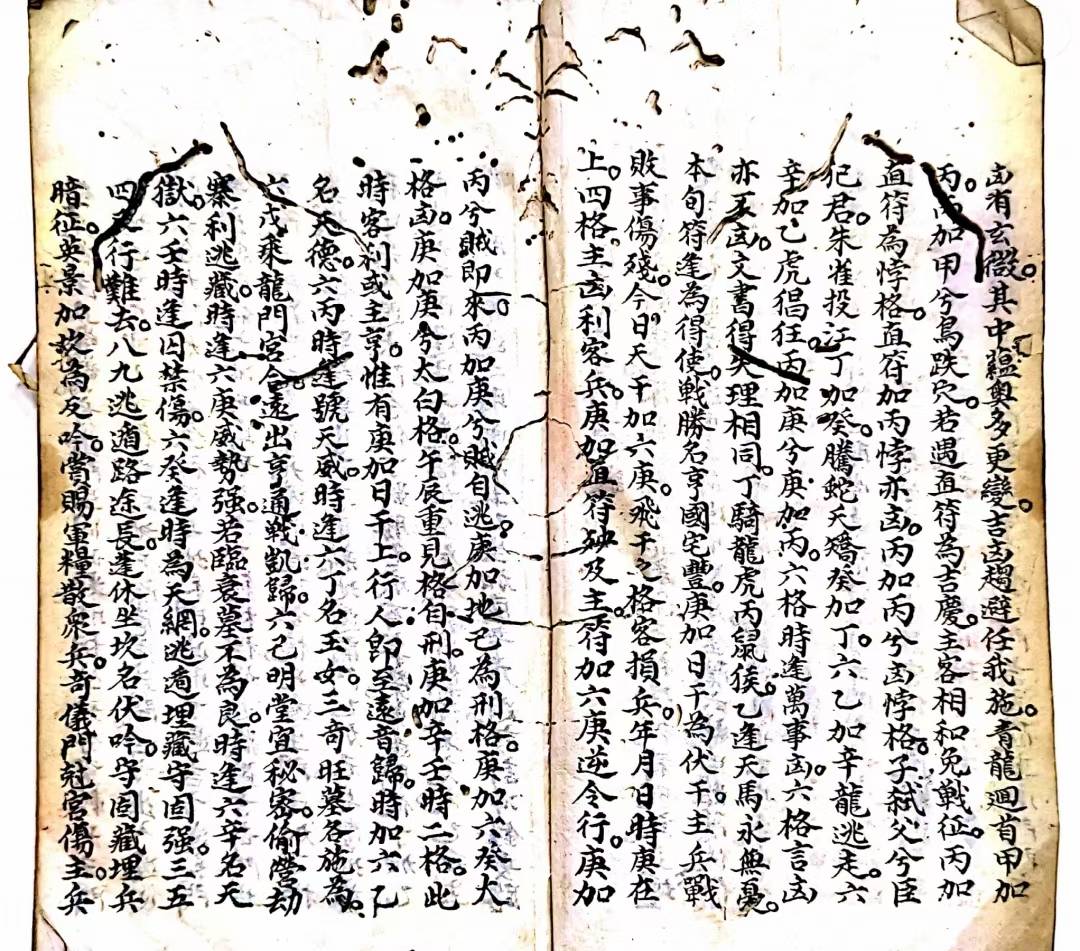 凶有玄微其中蘊奥多更變吉凶趨避任我施青龍迴首甲加
丙丙加甲兮鳥跌穴若遇直符為吉慶主客相和免戰征丙加
直符為悖格直符加丙悖亦凶丙加丙兮凶悖格子弑父兮臣
犯君朱雀投江丁加癸騰蛇夭矯癸加丁六乙加辛龍逃走六
辛加乙虎猖狂丙加庚兮庚加丙六格時逢萬事凶六格言凶
亦不凶文書得失理相同丁騎龍虎丙鼠猴乙逢天馬永無憂
本句符逢為得使戰勝名亨國宅豐庚加日干為伏干主兵戰
敗事傷殘今日天干加六庚飛干之格客損兵年月日時庚在
上四格主凶利客兵庚加直符及主符加六庚逆令行庚加
丙兮賊即來丙加庚兮賊自逃庚加地己為刑格庚加六癸大
格凶庚加庚兮太白格午辰重見格自刑庚加辛壬時二格此
時客利或主亨惟有庚加日干上行人即至遠音歸時加六乙
名天德六丙時逢號天威時逢六丁名玉女三奇旺墓各施為
六戊乘龍門宮合遠出亨通戰凱歸六己明堂宜秘密偷營劫
寨利逃藏時逢六庚威勢强若臨衰墓不為良時逢六辛名天
獄六壬時逢囚禁傷六癸逢時為天網逃遁埋藏守固强三五
四行難去八九逃遁路途長蓬休坐坎名伏吟守固藏埋兵
暗征英景加為反吟賞賜軍糧散衆兵奇儀門冠宮傷主兵